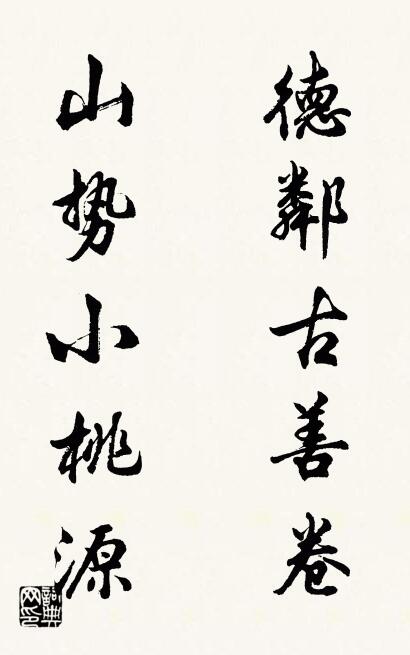 德鄰古善卷
山势小桃源